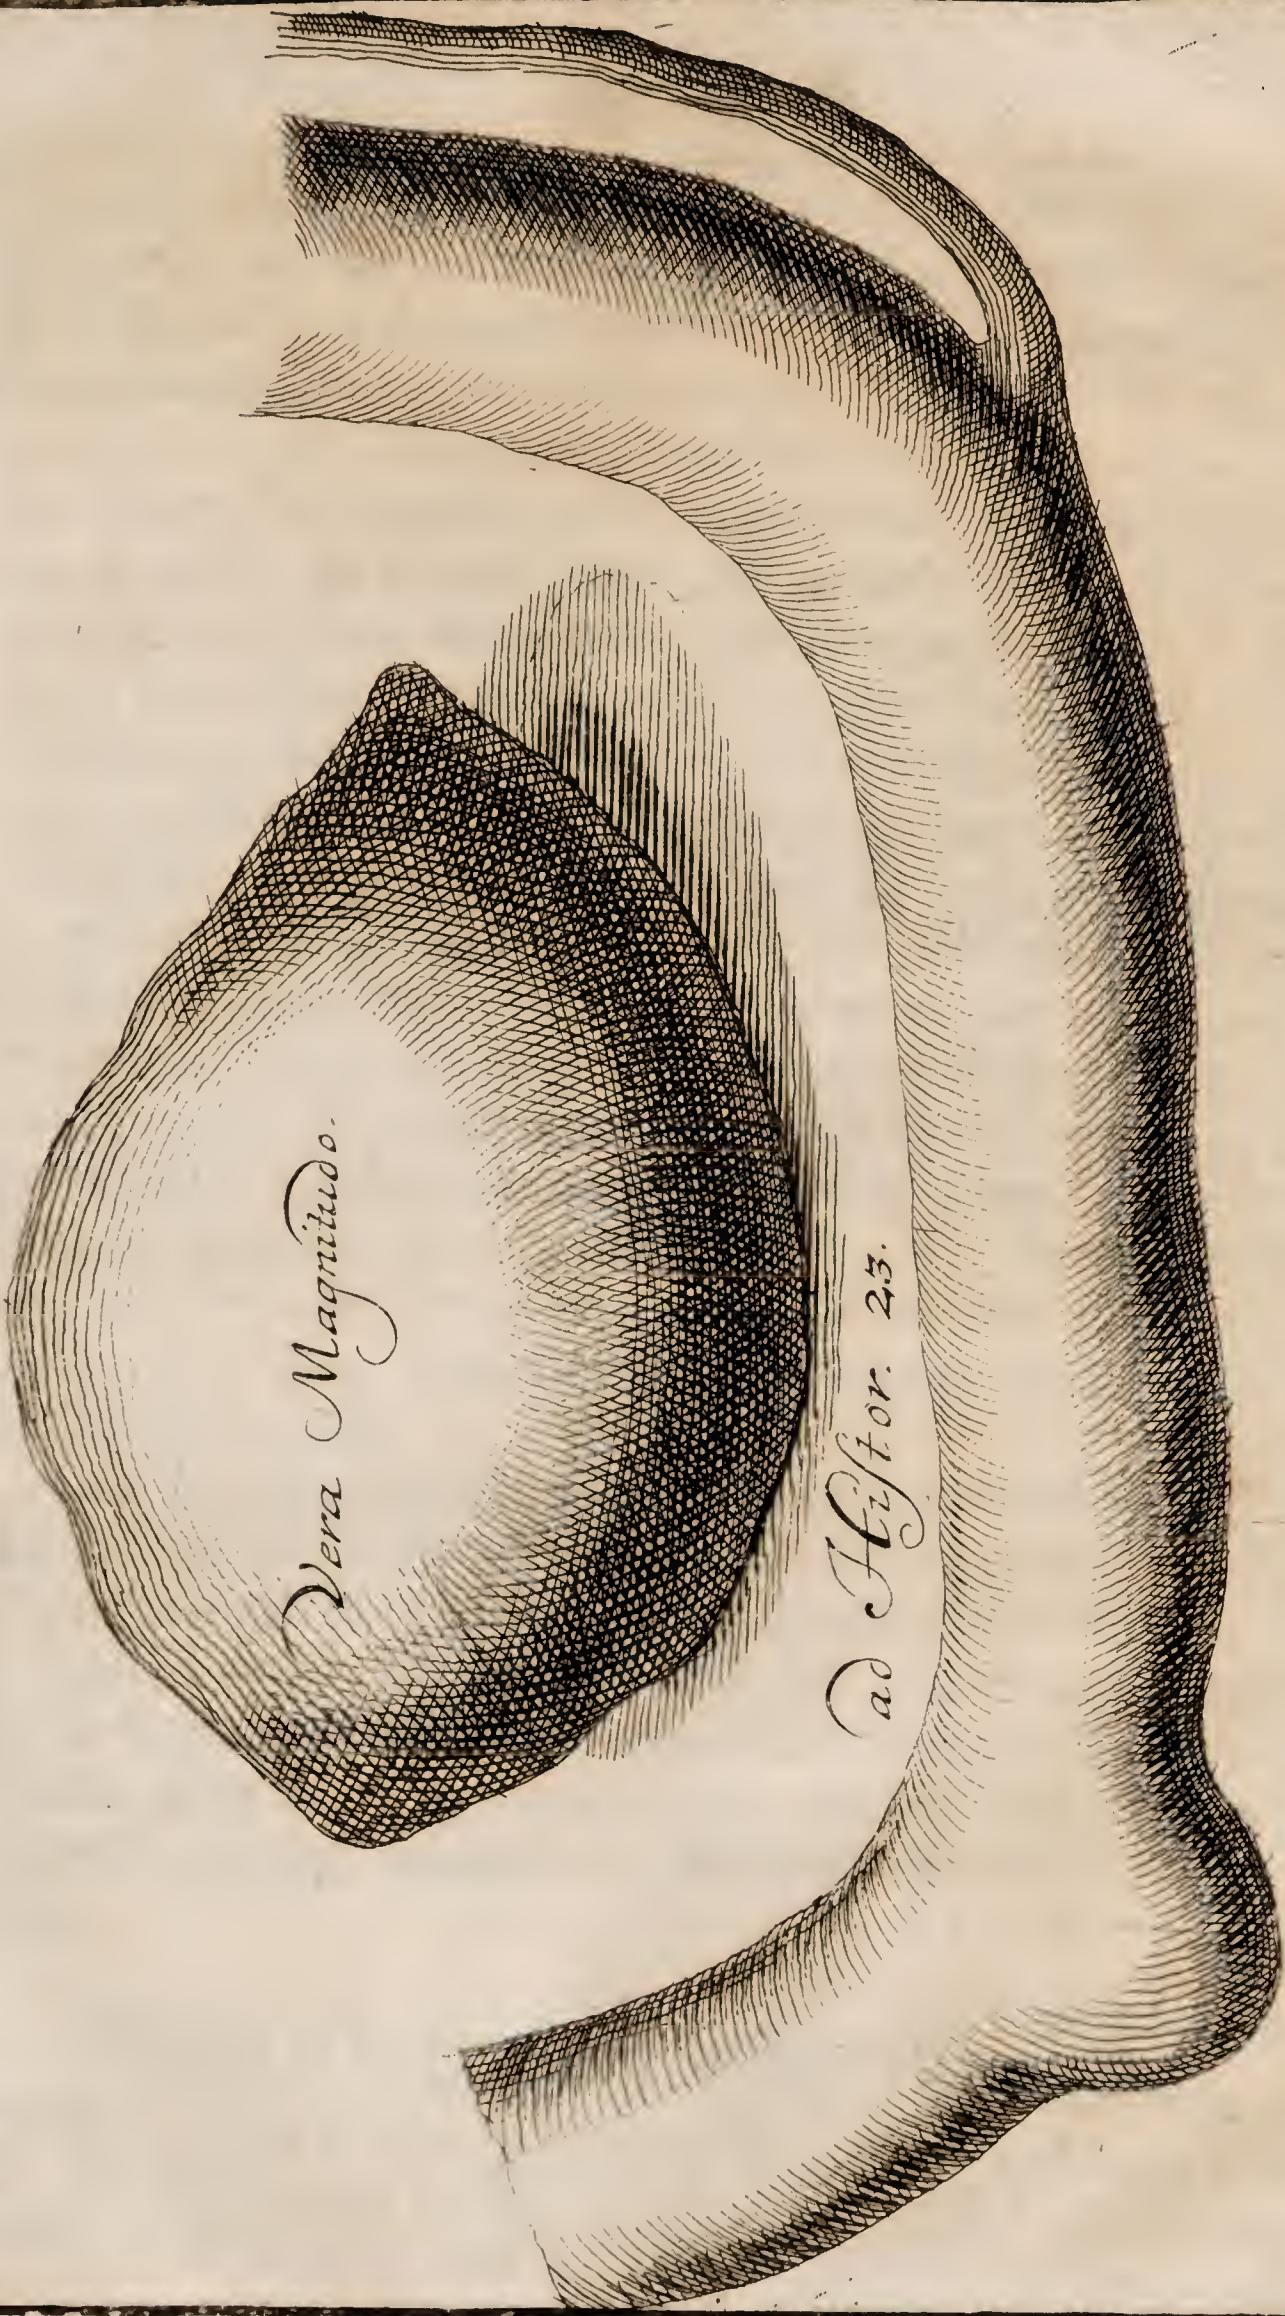 Vera Magnitudo.
ad Hiſtor. 23.